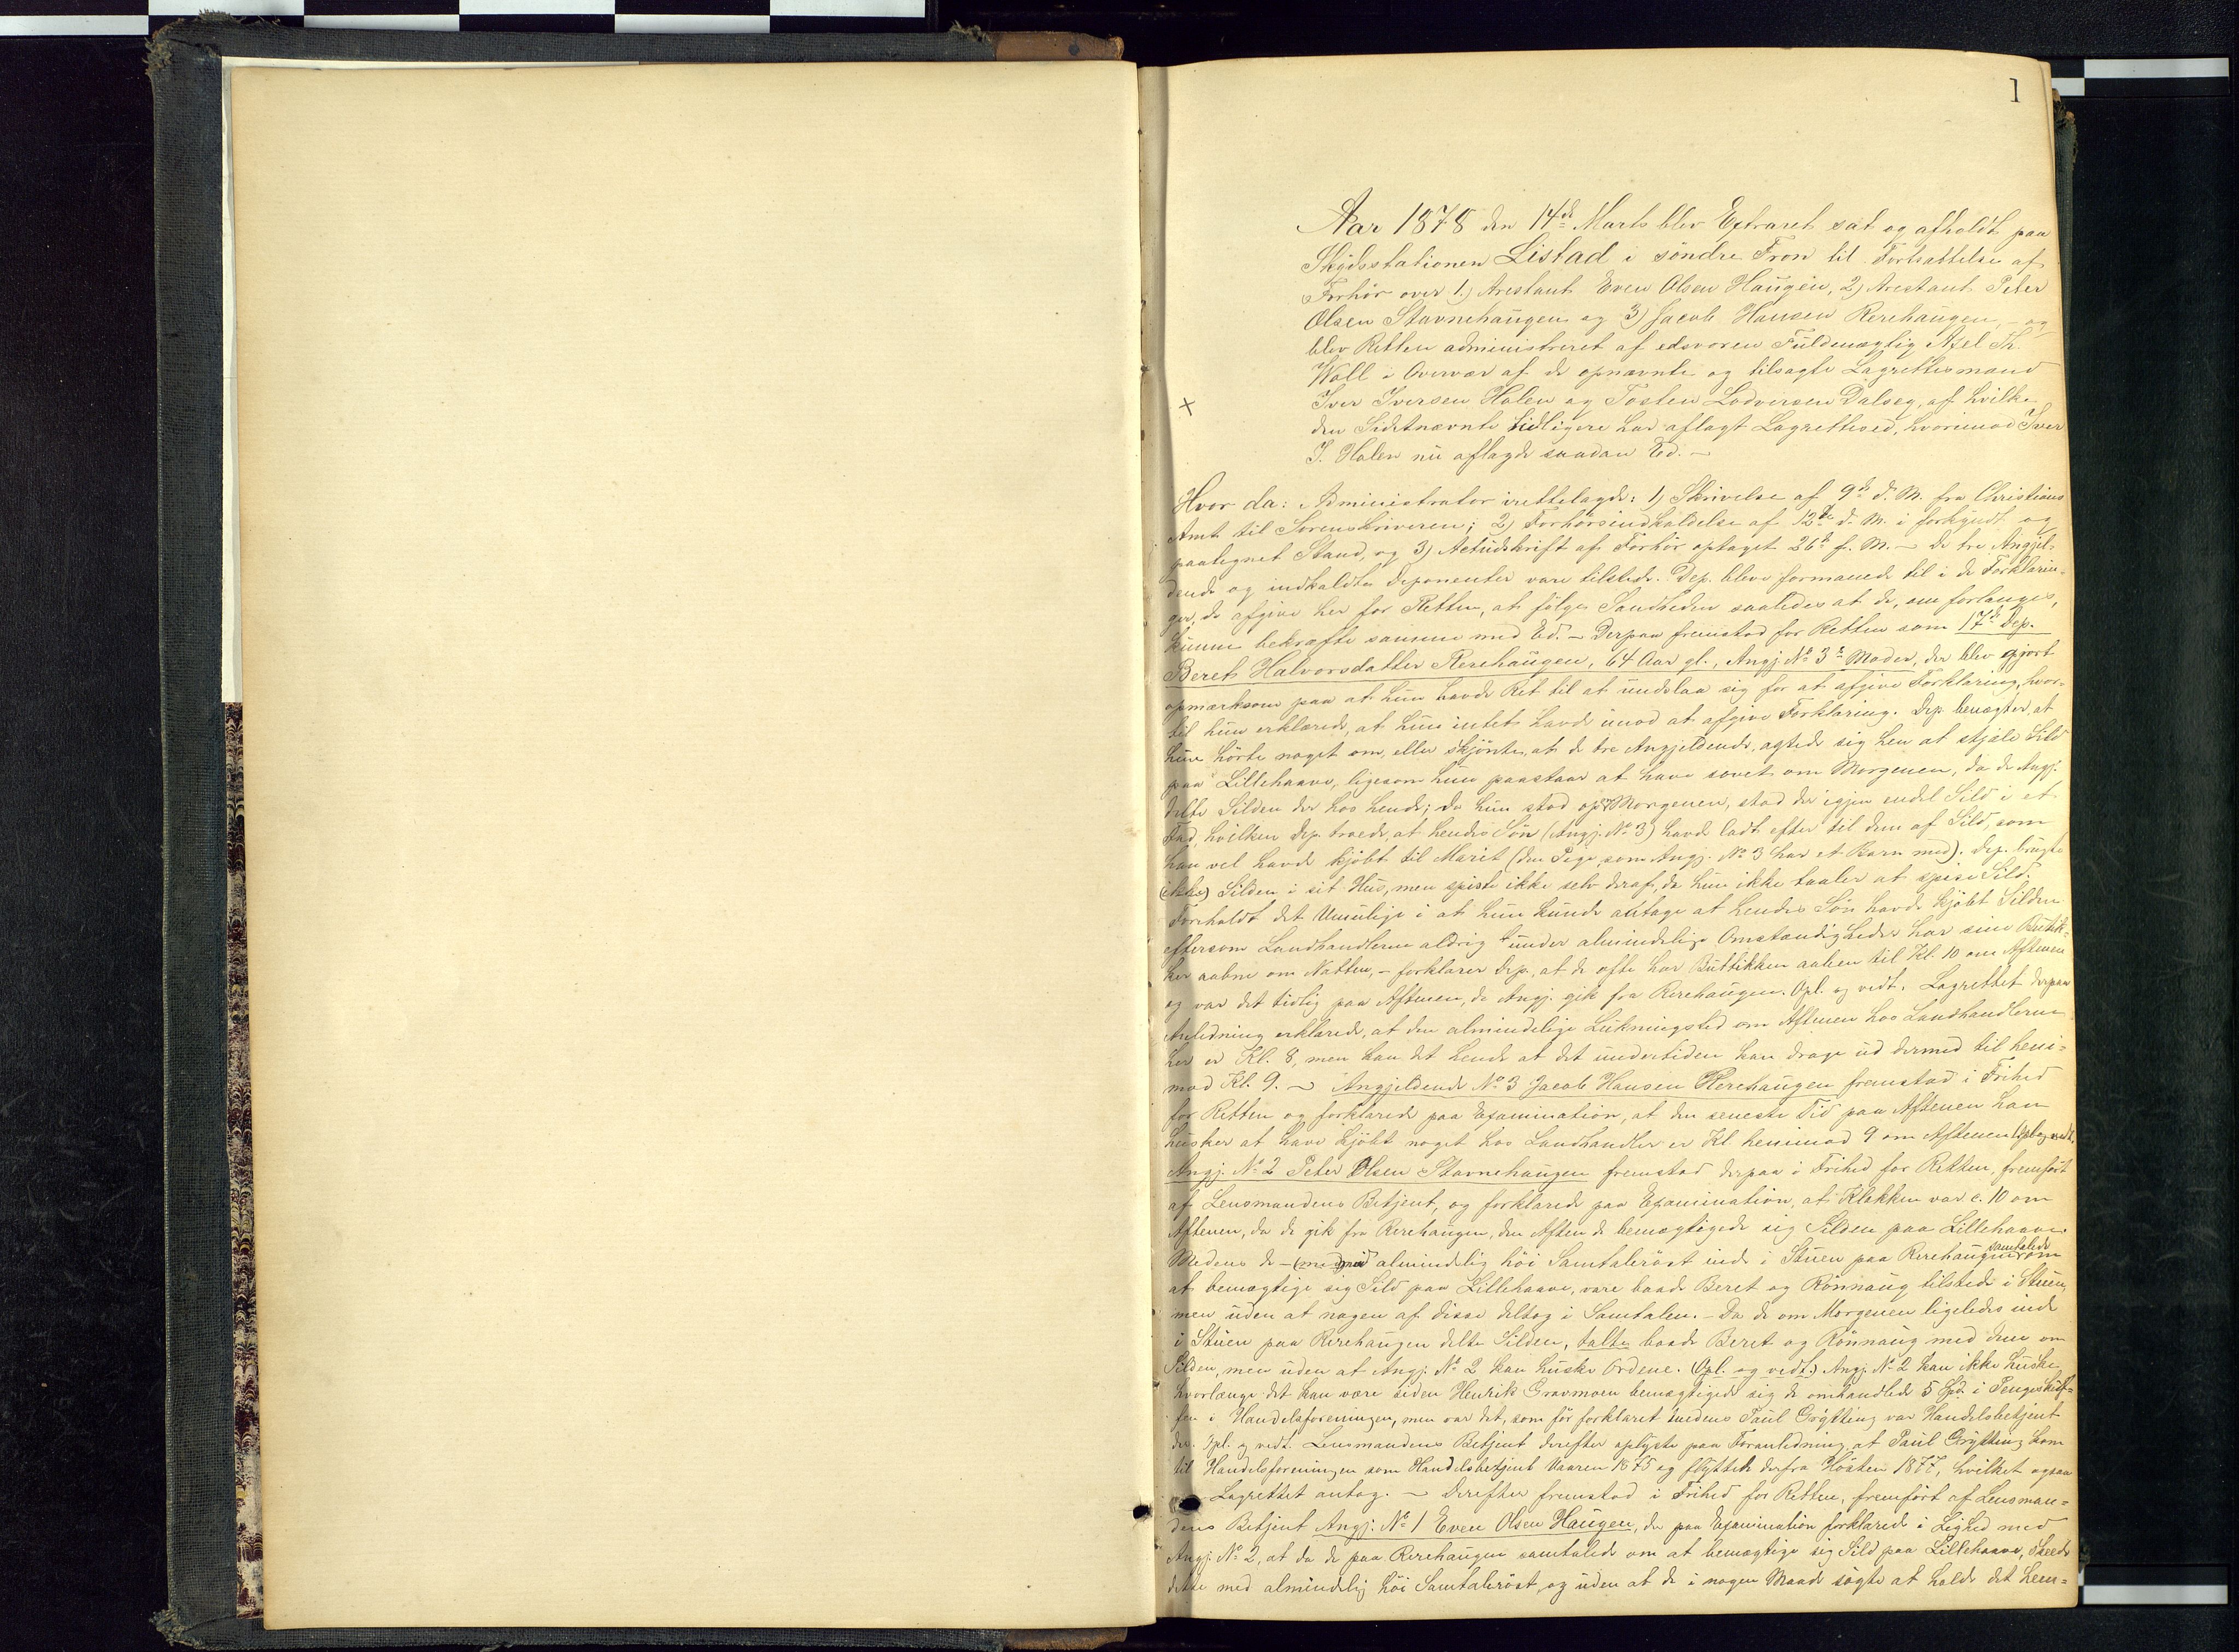 1
Aar 1878 den 14de Marts blev Extraret sat og afholdt paa
Skydsstationen Listad i søndre Fron til Fortsættelse af
Forhør over 1) Arrestant Even Olsen Haugen, 2) Arrestant Peter
Olsen Stavnehaugen og 3) Jacob Hansen Rerehaugen, – og
blev Retten administreret af edsvoren Fuldmægtig Axel Th.
Woll i Overvær af de opnævnte og tilsagte Lagrettesmænd
Iver Iversen Holen og Tosten Lodversen Dalseg, af hvilke
den Sidstnævnte tidligere har aflagt Lagrettesed, hvorimod Iver
I. Holen nu aflagde saadan Ed. –
Hvor da: Administrator irettelagde: 1) Skrivelse af 9de d. M. fra Christians
Amt til Sorenskriveren; 2) Forhørsindkaldelse af 12te d. M. i forkyndt og
paategnet Stand, og 3) Actudskrift af Forhør optaget 26de f. M. – De tre Angjel-
dende og indkaldte Deponenter vare tilstede. Dep. bleve formanede til i de Forklarin-
ger, de afgive her for Retten, at følge Sandheden saaledes at de, om forlanges,
kunne bekræfte samme med Ed. – Derpaa fremstod for Retten som 17de Dep.
Beret Halvorsdatter Rerehaugen, 64 Aar gl., Angj. No 3s Moder, der blev gjort
opmærksom paa at hun havde Ret til at undslaa sig for at afgive Forklaring, hvor-
til hun erklærede, at hun intet havde imod at afgive Forklaring. Dep. benægter, at
hun hørte noget om, eller skjønte, at de tre Angjeldende, agtede sig hen at stjæle Sild
paa Lillehaave, ligesom hun paastaar at have sovet om Morgenen, da de Angj.
delte Silden der hos hende; da hun stod op om Morgenen, stod der igjen endel Sild i et
Fad, hvilken Dep. troede, at hendes Søn (Angj. No 3) havde ladt efter til dem af Sild, som
han vel havde kjøbt til Marit (den Pige, som Angj. No 3 har et Barn med). Dep. brugte
(ikke) Silden i sit Hus, men spiste ikke selv deraf, da hun ikke taaler at spise Sild.
Foreholdt det Umulige i at hun kunde antage at hendes Søn havde kjøbt Silden
eftersom Landhandlerne aldrig under almindelige Omstændigheder har sine Butik-
ker aabne om Natten, – forklarer Dep., at de ofte har Buttikken aaben til Kl. 10 om Aftenen
og var det tidlig paa Aftenen, da Angj. gik fra Rerehaugen. Opl. og vedt. Lagrettet derpaa
Anledning erklærede, at den almindelige Lukningstid om Aftenen hos Landhandlerne
her er Kl. 8, men kan det hende at det undertiden kan drage ud dermed til heni-
mod Kl. 9. – Angjeldende No 3 Jacob Hansen Rerehaugen fremstod i Frihed
for Retten og forklarede paa Examination, at den seneste Tid paa Aftenen han
husker at have kjøbt noget hos Landhandler er Kl. henimod 9 om Aftenen. Opl. og vedt.
Angj. No 2 Peter Olsen Stavnehaugen fremstod derpaa i Frihed for Retten, fremført
af Lensmandens Betjent, og forklarede paa Examination, at Klokken var c. 10 om
Aftenen, da de gik fra Rerehaugen, den Aften de bemægtigede sig Silden paa Lillehaave.
Medens de – med almindelig høi Samtalerøst inde i Stuen paa Rerehaugen samtalede om
at bemægtige sig Sild paa Lillehaave, vare baade Beret og Rønnaug tilstede i Stuen,
men uden at nogen af disse deltog i Samtalen. – Da de om Morgenen ligeledes inde
i Stuen paa Rerehaugen delte Silden, talte baade Beret og Rønnaug med dem om
Silden, men uden at Angj. No 2 kan huske Ordene. (Opl. og vedt.) Angj. No 2 kan ikke huske,
hvorlænge det kan være siden Henrik Gravmoen bemægtigede sig de omhandlede 5 Spd. i Pengeskuf-
fen i Handelsforeningen, men var det, som før forklaret medens Paul Grytting var Handelsbetjent
der. Opl. og vedt. Lensmandens Betjent derefter oplyste paa Foranledning, at Paul Grytting kom
til Handelsforeningen som Handelsbetjent Vaaren 1875 og flyttede derfra Høsten 1877, hvilket ogsaa
Lagrettet antog. – Derefter fremstod i Frihed for Retten, fremført af Lensman-
dens Betjent Angj. No 1 Even Olsen Haugen, der paa Examination forklarede i Lighed med
Angj. No 2, at da de paa Rerehaugen samtalede om at bemægtige sig Sild paa Lillehaave, skeede
dette med almindelig høi Samtalerøst, og uden at de i nogen Maade søgte at holde det hem-